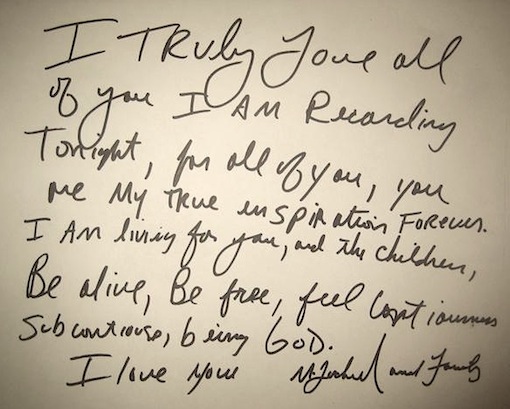 I TRuly love all
of you I AM Recording
Tonight, for all of you, you
are My True inspiration Forever.
I AM living for you, and the children,
Be alive, Be free, feel
being GOD.
I love you Michael and Family